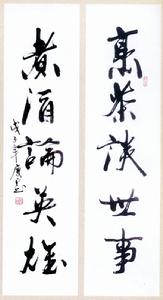 烹茶談世事
煮酒論英雄
戊子年